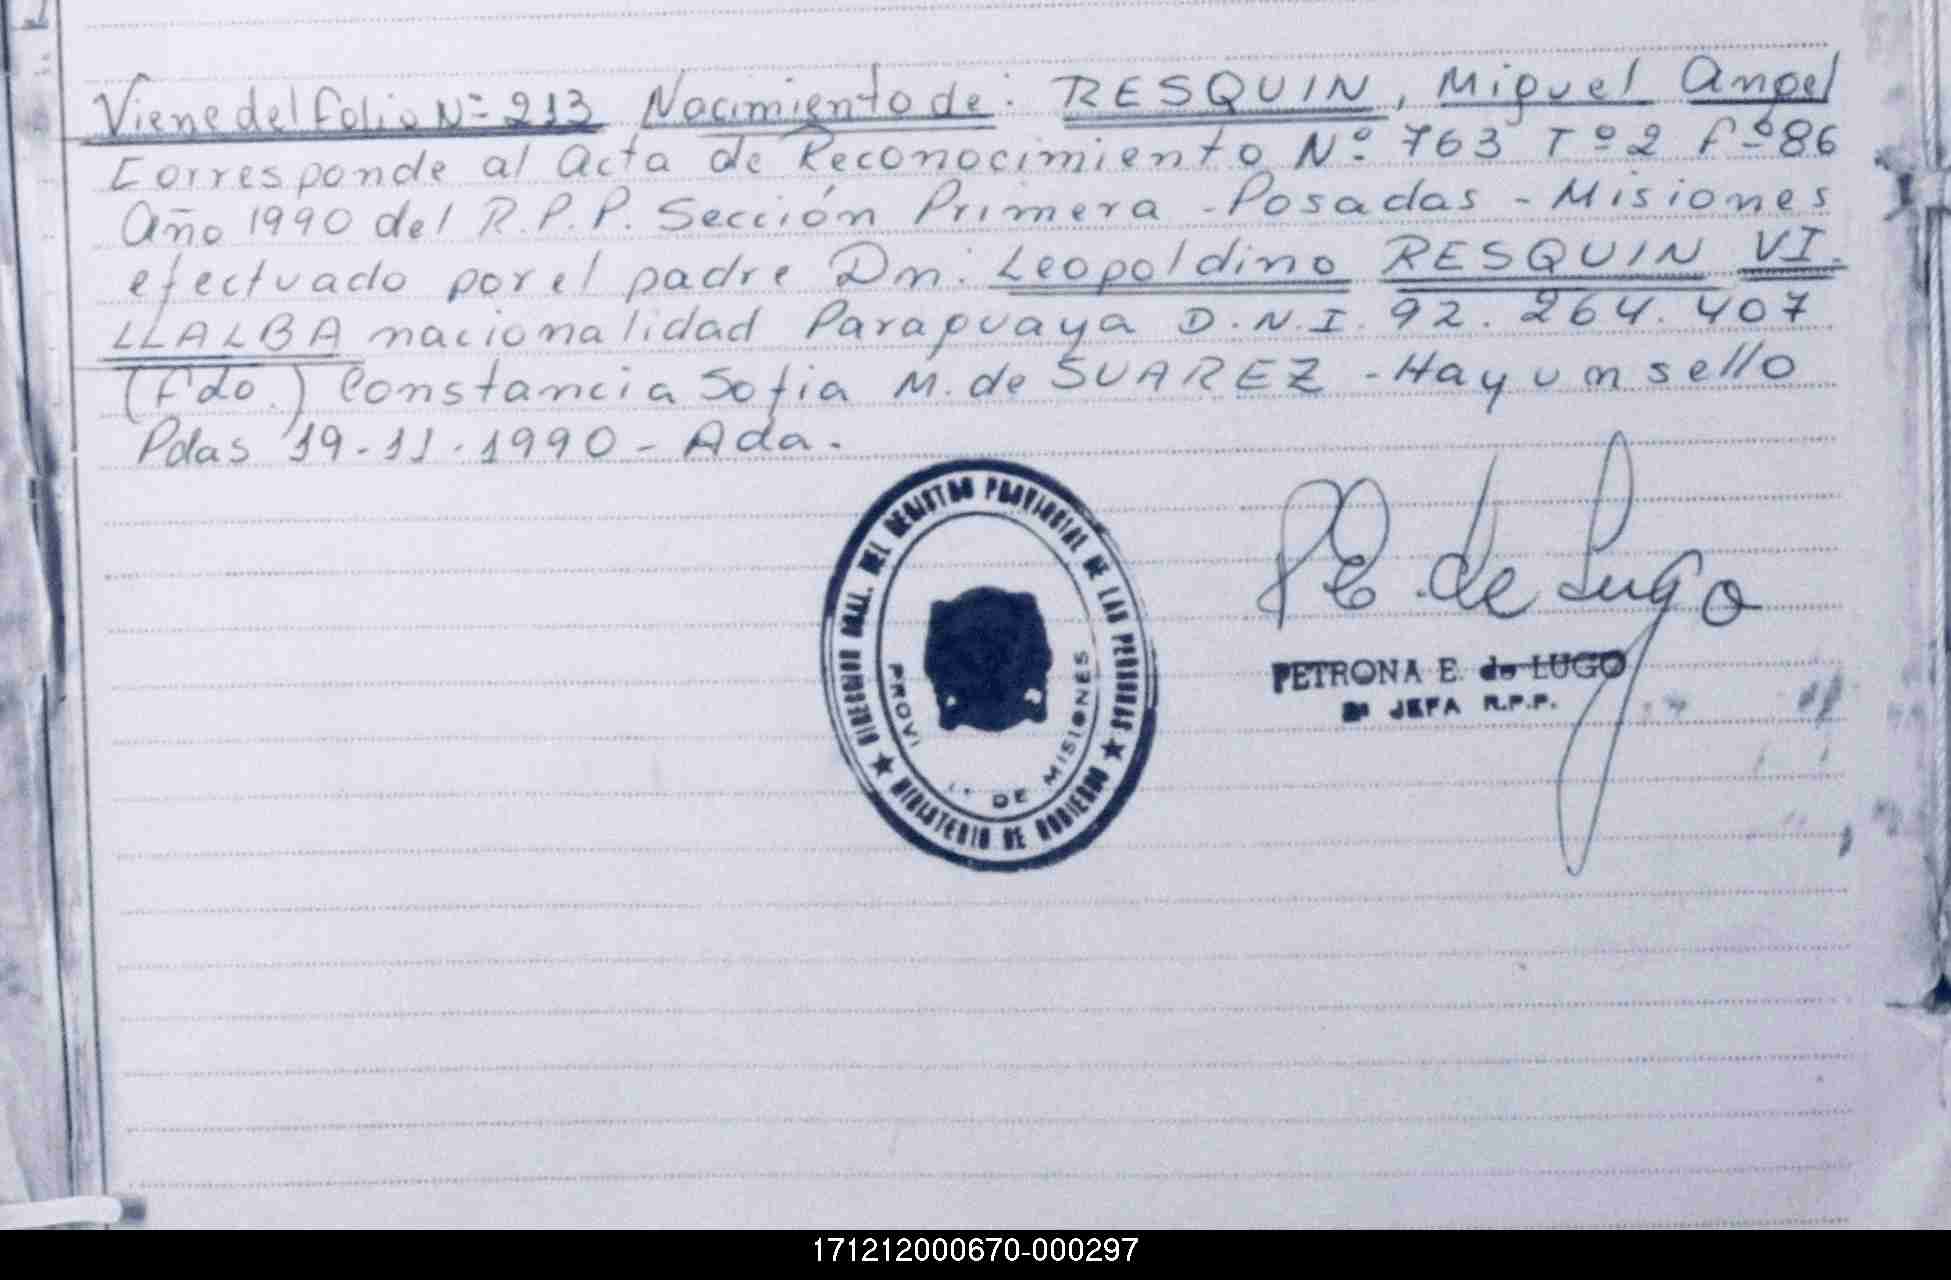 Viene del folio Nº 213 Nacimiento de: RESQUIN, Miguel Angel
Corresponde al Acta de Reconocimiento Nº 763 Tº 2 Fº 86
Año 1990 del R.P.P. Sección Primera - Posadas - Misiones
efectuado por el padre Dn. Leopoldino RESQUIN VI.
LLALBA nacionalidad Paraguaya D.N.I. 92.264.407
(Fdo.) Constancia Sofia M. de SUAREZ - Hay un sello
Pdas 19-11-1990 - Ada.
DIRECCION GRAL. DEL REGISTRO PROVINCIAL DE LAS PERSONAS
MINISTERIO DE GOBIERNO
DE MISIONES
PE. de Lugo
PETRONA E. de LUGO
JEFA R.P.P.
171212000670-000297